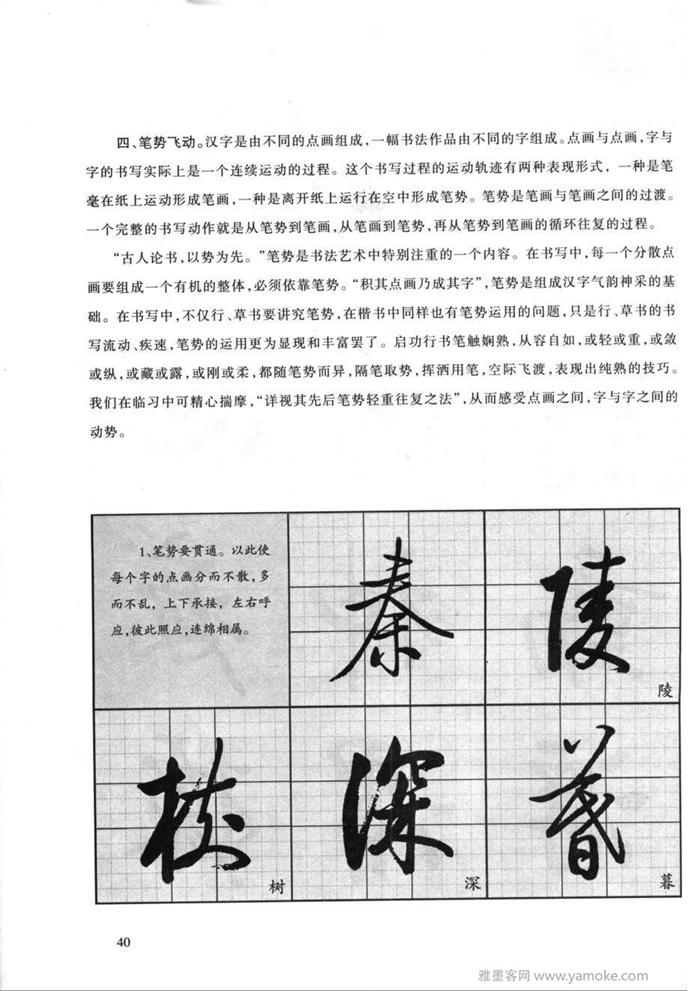 四、笔势飞动。汉字是由不同的点画组成，一幅书法作品由不同的字组成。点画与点画，字与
字的书写实际上是一个连续运动的过程。这个书写过程的运动轨迹有两种表现形式，一种是笔
毫在纸上运动形成笔画，一种是离开纸上运行在空中形成笔势。笔势是笔画与笔画之间的过渡。
一个完整的书写动作就是从笔势到笔画，从笔画到笔势，再从笔势到笔画的循环往复的过程。
“古人论书，以势为先。”笔势是书法艺术中特别注重的一个内容。在书写中，每一个分散点
画要组成一个有机的整体，必须依靠笔势。“积其点画乃成其字”，笔势是组成汉字气韵神采的基
础。在书写中，不仅行、草书要讲究笔势，在楷书中同样也有笔势运用的问题，只是行、草书的书
写流动、疾速，笔势的运用更为显现和丰富罢了。启功行书笔触娴熟，从容自如，或轻或重，或敛
或纵，或藏或露，或刚或柔，都随笔势而异，隔笔取势，挥洒用笔，空际飞渡，表现出纯熟的技巧。
我们在临习中可精心揣摩，“详视其先后笔势轻重往复之法”，从而感受点画之间，字与字之间的
动势。
1、笔势要贯通。以此使
每个字的点画分而不散，多
而不乱，上下承接，左右呼
应，彼此照应，连绵相属。
秦
陵
陵
树
树
深
深
暮
暮
40
雅墨客网 www.yamoke.com